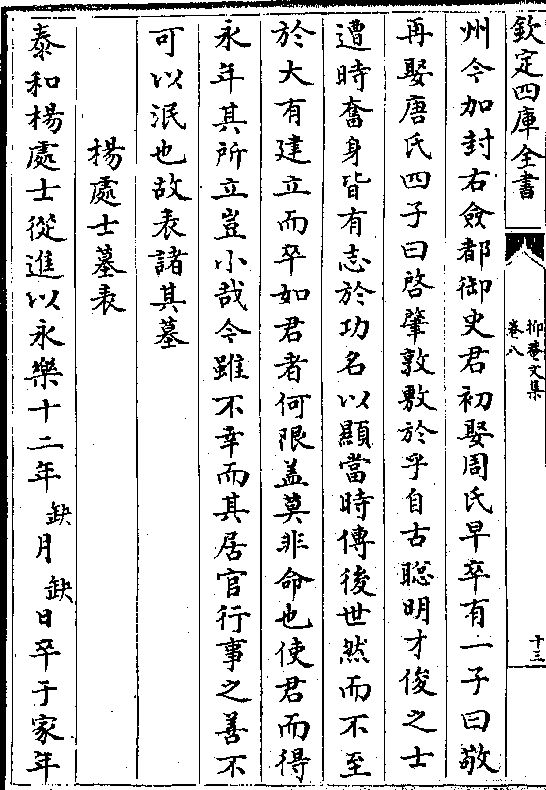 欽定四庫全書
抑菴文集
卷八
十三
州令加封右僉都御史君初娶周氏早卒有一子曰敬
再娶唐氏四子曰啓肇敦敷於乎自古聰明才俊之士
遭時奮身皆有志於功名以顯當時傳後世然而不至
於大有建立而卒如君者何限盖莫非命也使君而得
永年其所立豈小哉今雖不幸而其居官行事之善不
可以泯也故表諸其墓
楊處士墓表
泰和楊處士從進以永樂十二年缺月缺日卒于家年